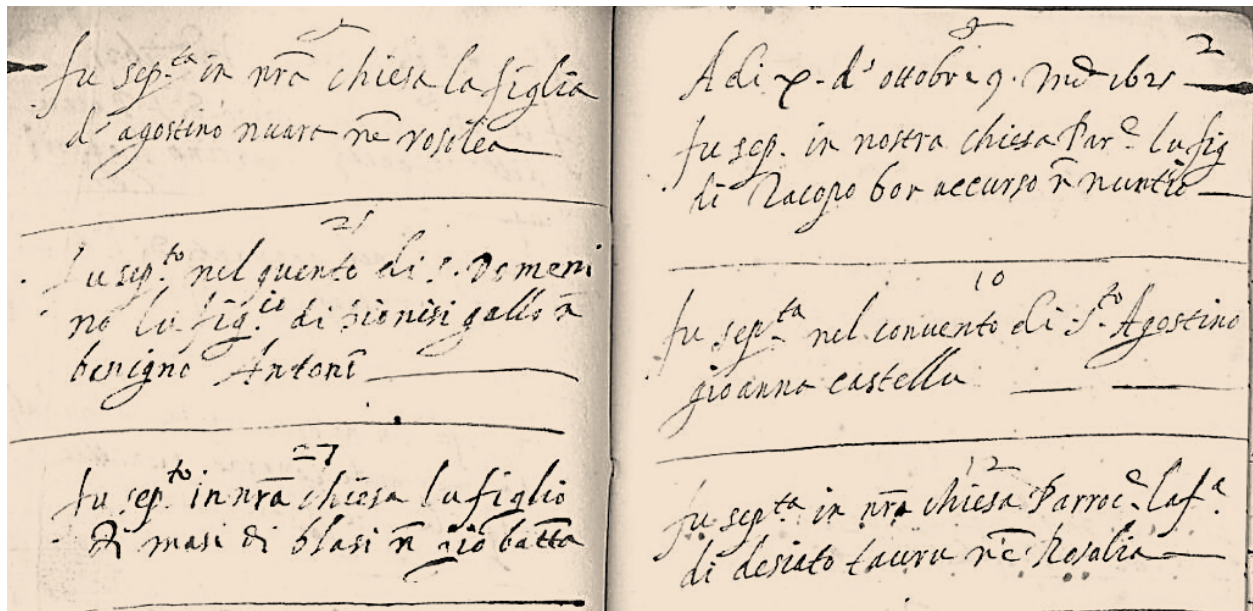 5
fu sep.ta in nrã chiesa la figlia
d' agostino nuara nẽ rosolea
21
fu sep.to nel quento di s. Domeni
no lu fig.io di dionisi gallo ñ
benigno Antoni
27
fu sep.to in nrã chiesa lu figlio
di masi di blasi ñ gio batta
2
8
A di x. d' ottobre 9. Ind 1625
fu sep. in nostra chiesa Par.e lu fig
di Iacopo bon accurso ñ nuntio
10
fu sep.ta nel convento di S.to Agostino
gioanna castella
12
fu sep.ta in nrã chiesa Parroc.e la f.a
di desiato tauru nẽ Rosalia